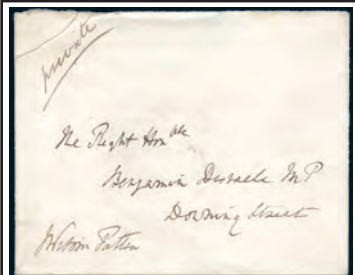 private
The Right Hon^ble
Benjamin Disraeli MP
Downing Street
J Wilson Patten